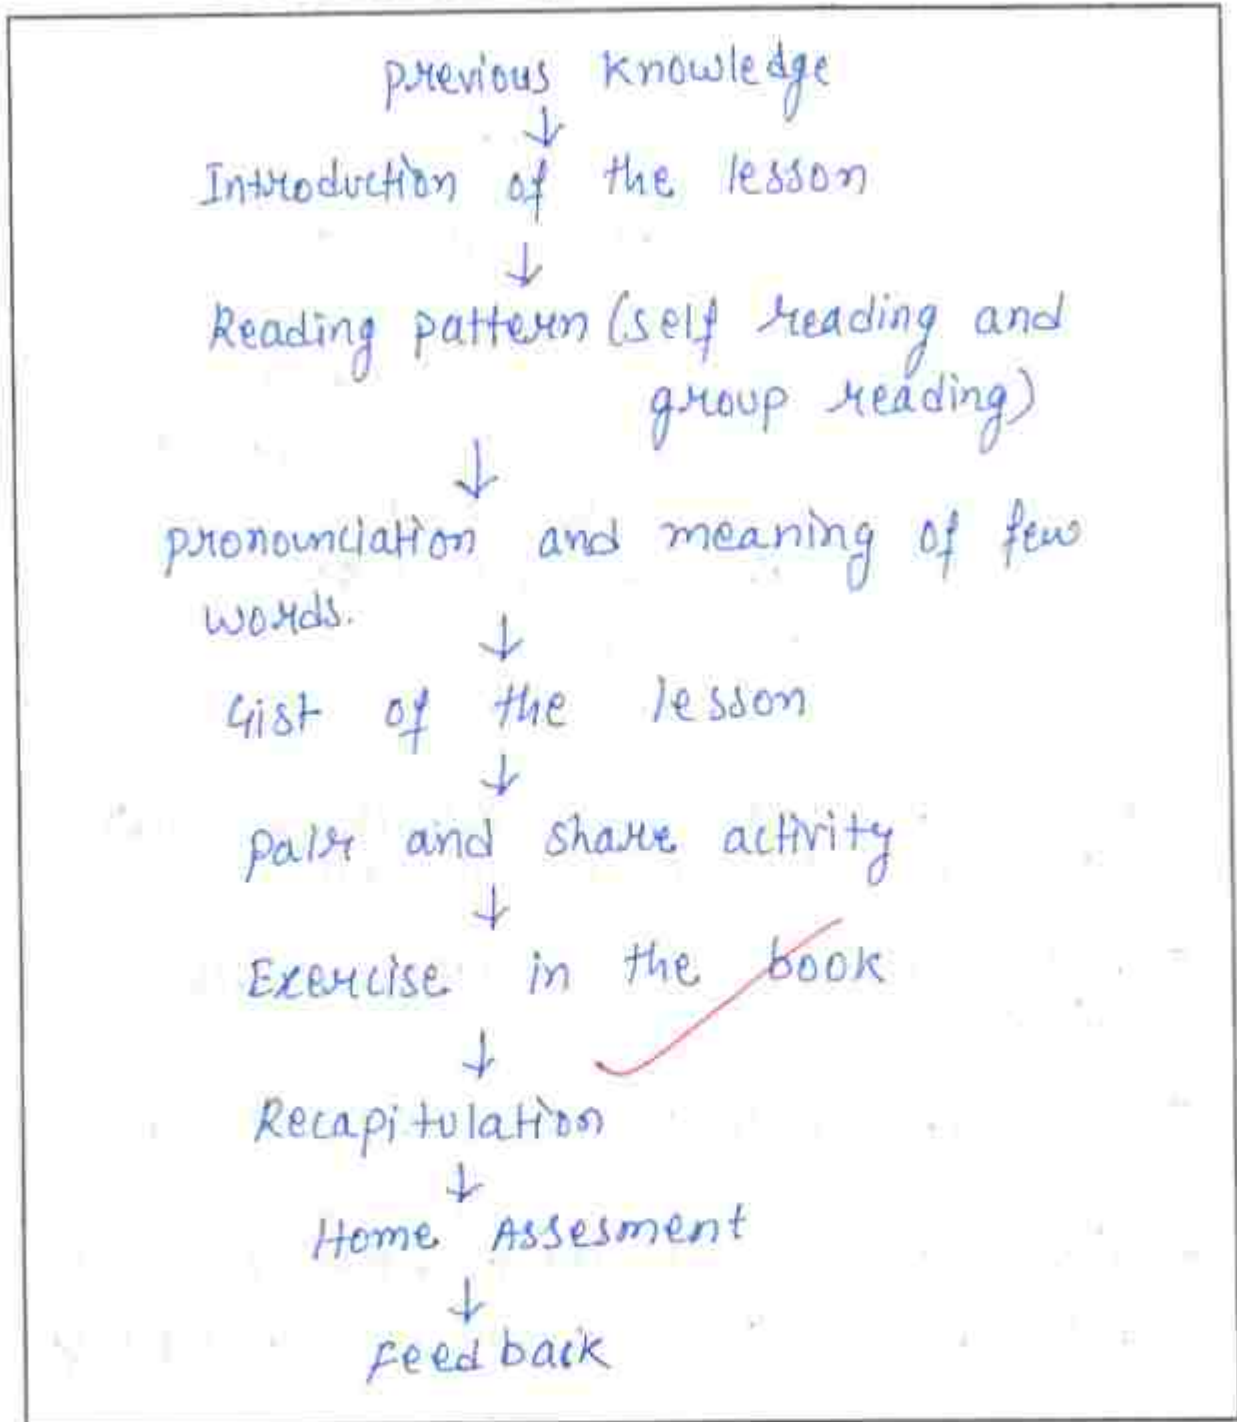 previous knowledge
↓
Introduction of the lesson
↓
Reading pattern (self reading and
group reading)
↓
pronounciation and meaning of few
words.
↓
Gist of the lesson
↓
pair and share activity
↓
Exercise in the book
↓
Recapitulation
↓
Home Assesment
↓
Feedback